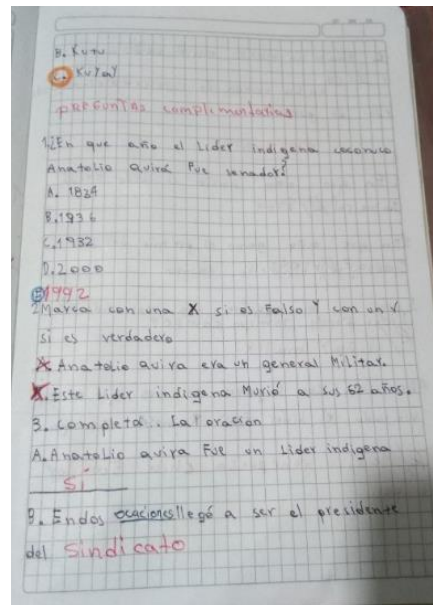 B. Kutu
C. KuYaY
PREGUNTAS complementarias
1. ¿En que año el Lider indigena coconuco
Anatolio quirá Fue senador?
A. 1824
B. 1936
C. 1932
D. 2000
E 1992
2. Marca con una X si es Falso Y con un V
si es verdadero
X. Anatolio quira era un general Militar.
X. Este Lider indigena Murió a sus 62 años.
3. completa.. La oracion
A. Anatolio quira Fue un Lider indigena
Sí
B. En dos ocaciones llegó a ser el presidente
del Sindicato